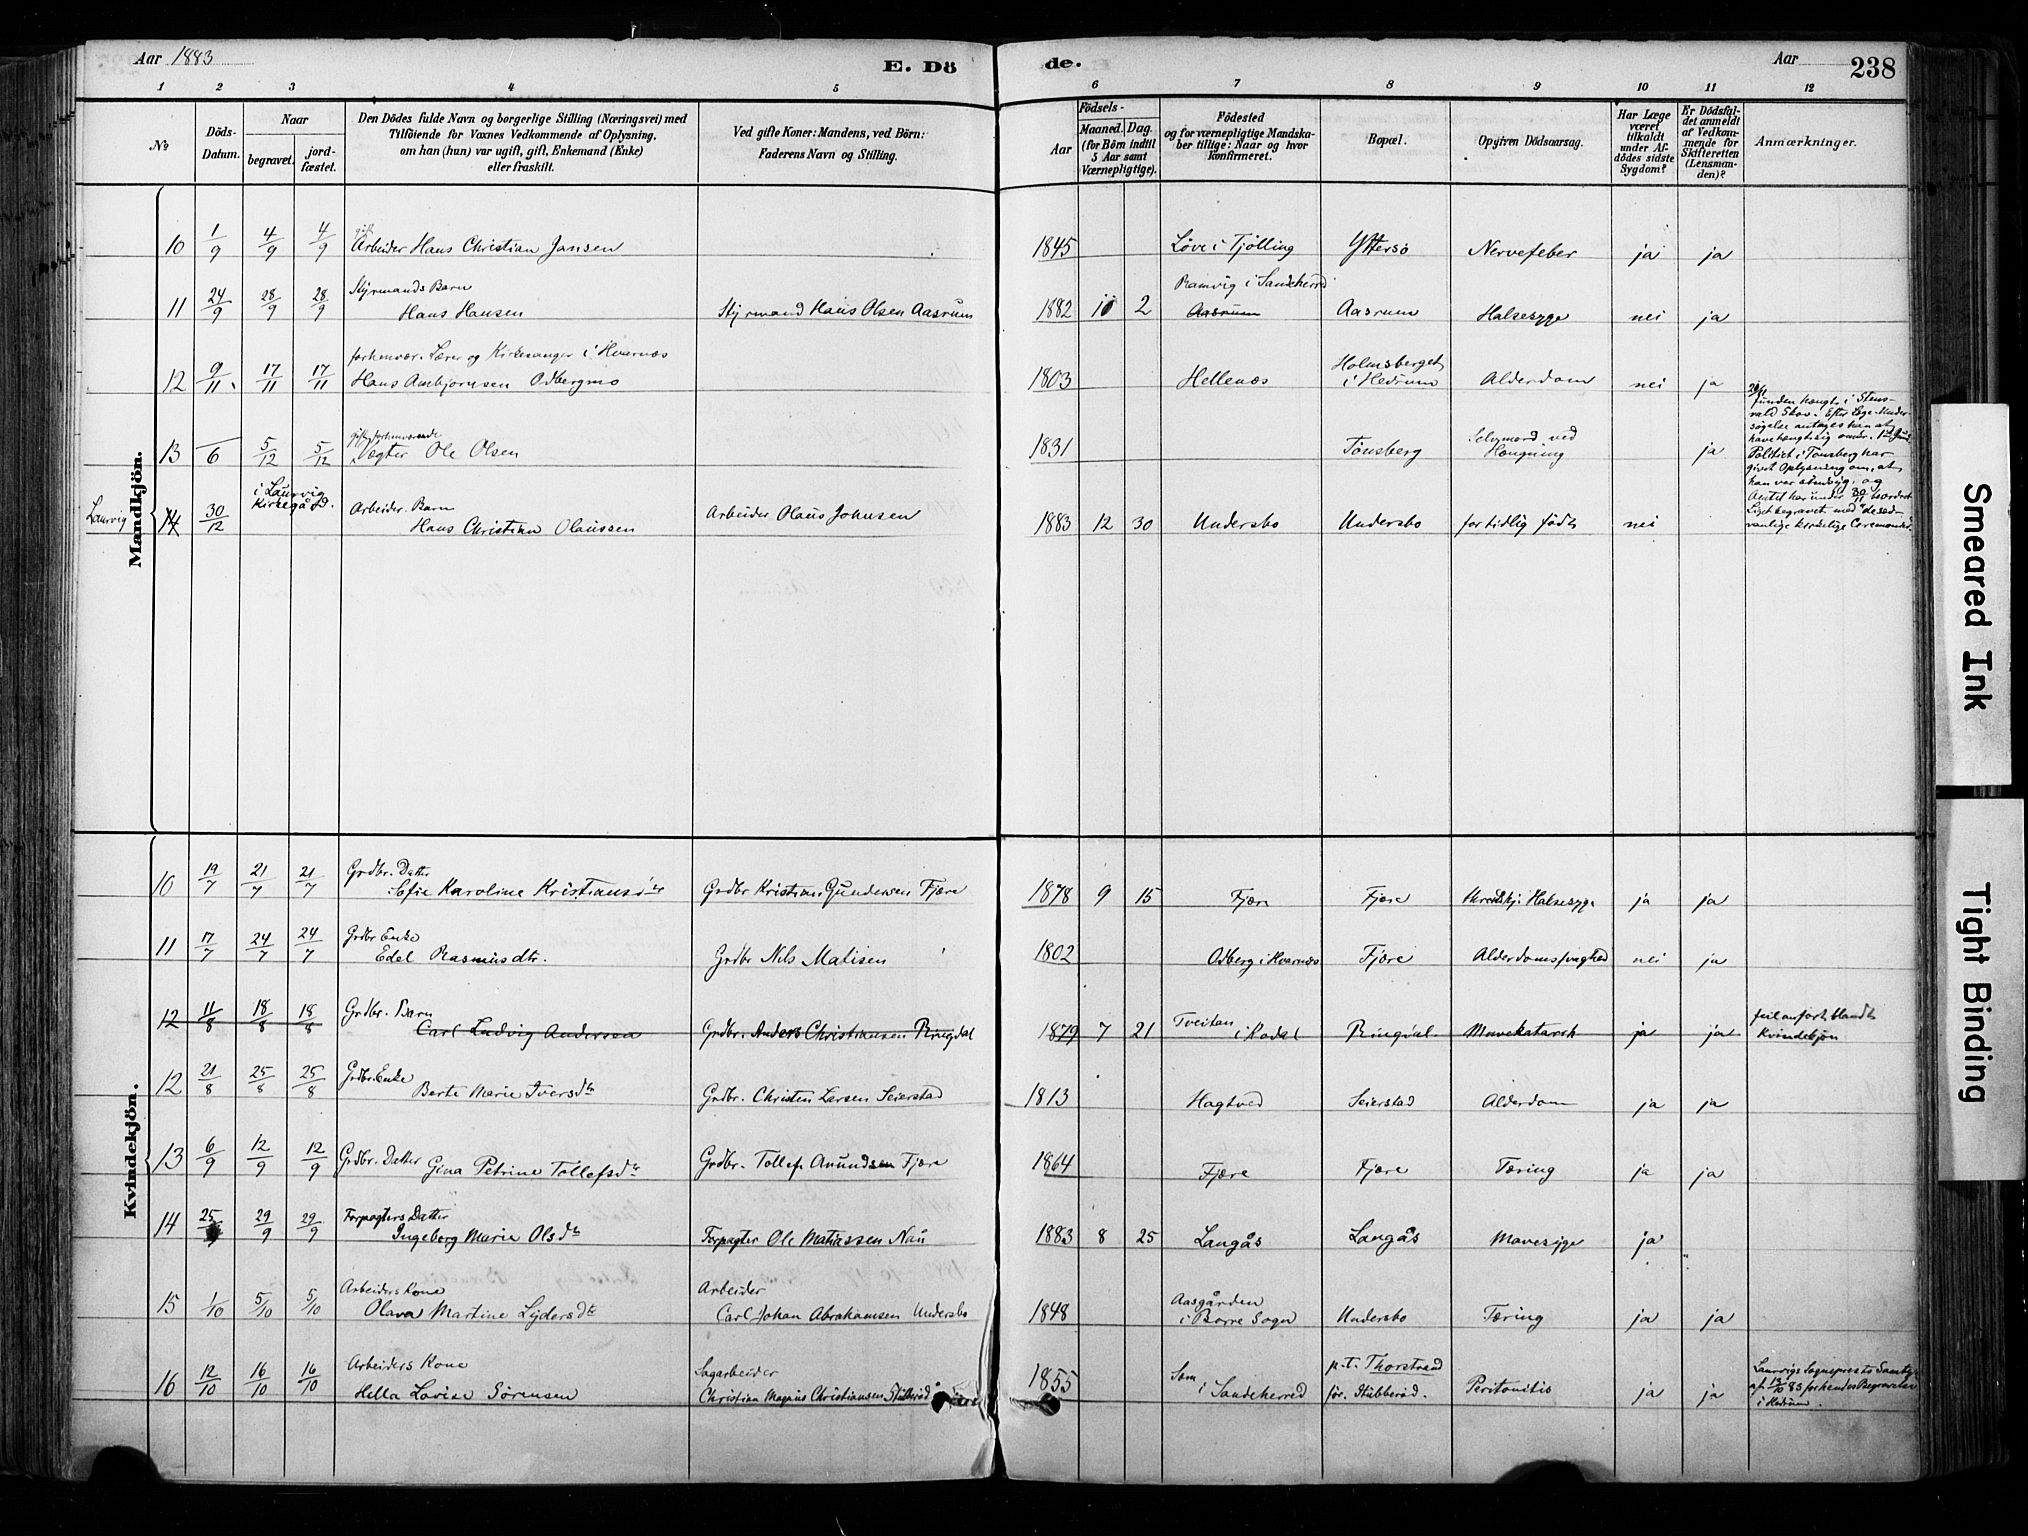 Aar 1883
E. Dö
de.
Aar
238
1 2 3 4 5 6 7 8 9 10 11 12
No
Döds-Datum.
Naar
begravet.
jord-fæstet.
Den Dödes fulde Navn og borgerlige Stilling (Næringsvei) med
Tilföiende for Voxnes Vedkommende af Oplysning,
om han (hun) var ugift, gift, Enkemand (Enke)
eller fraskilt.
Ved gifte Koner: Mandens, ved Börn:
Faderens Navn og Stilling.
Födsels-
Aar
Maaned. Dag.
(for Börn indtil
5 Aar samt
Værnepligtige).
Födested
og for værnepligtige Mandska-
ber tillige: Naar og hvor
konfirmeret.
Bopæl.
Opgiven Dödsaarsag.
Har Læge
været
tilkaldt
under Af-
dödes sidste
Sygdom?
Er Dödsfal-
det anmeldt
af Vedkom-
mende for
Skifteretten
(Lensman-
den)?
Anmærkninger.
Mandkjön.
10 1/9 4/9 4/9 gift Arbeider Hans Christian Jansen 1845 Løve i Tjølling Yttersö Nervefeber ja ja
11 24/9 28/9 28/9 Styrmands Barn
Hans Hansen Styrmand Hans Olsen Aasrum 1882 10 2 Ramvig i Sandeherred Aasrum Aasrum Halsesyge nei ja
12 9/11 17/11 17/11 forhenvær. Lærer og Kirkesanger i Hvarnæs
Hans Ambjørnsen Odbergmo 1803 Hellenæs Holmsberget i Hedrum Alderdom nei ja
13 /6 5/12 5/12 gift, forhenværende
Vægter Ole Olsen 1831 Tönsberg Selvmord ved Hængning ja
funden hængt i Stens-
vald Skov. Efter Læge-Under-
søgelse antages han at
have hængt sig omkr. 1ste Juni.
Politiet i Tönsberg har
givet Oplysning om, at
han var sindssyg, og
Amtet har under 30/11 beordret
Liget begravet med de sæd-
vanlige kirkelige Ceremonier.
Laurvig 14 30/12 i Laurvig Kirkegård. Arbeider. Barn
Hans Christian Olaussen Arbeider Olaus Johnsen 1883 12 30 Undersbo Undersbo for tidlig født nei
Kvindekjön.
10 19/7 21/7 21/7 Grdbr. Datter
Sofie Karoline Kristiansdtr Grdbr Kristian Gundersen Fjære 1878 9 15 Fjære Fjære Halsesyge ja ja
11 17/7 24/7 24/7 Grdbr Enke
Edel Rasmusdtr. Grdbr Nils Matisen 1802 Odberg i Hvarnæs Fjære Alderdomssvaghed nei ja
12 11/8 18/8 18/8 Grdbr. Barn
Carl Ludvig Andersen Grdbr. Anders Christiansen Ringdal 1879 7 21 Tveitan i Kodal Ringdal Mavekatarrh ja ja feil anfört blandt Kvindekjön
12 21/8 25/8 25/8 Grdbr. Enke
Berte Marie Iversdtr Grdbr. Christen Larsen Seierstad 1813 Hagtved Seierstad Alderdom ja ja
13 6/9 12/9 12/9 Grdbr. Datter Gina Petrine Tollefsdtr Grdbr. Tollef Amundsen Fjære 1864 Fjære Fjære Tæring ja ja
14 25/9 29/9 29/9 Forpagters Datter
Ingeborg Marie Olsdtr Forpagter Ole Matiassen Nau 1883 8 25 Langås Langås Mavesyge ja
15 1/10 5/10 5/10 Arbeiders Kone
Olava Martine Lydersdtr Arbeider
Carl Johan Abrahamsen Undersbo 1848 Aasgården i Borre Sogn Undersbo Tæring ja ja
16 12/10 16/10 16/10 Arbeiders Kone
Hella Lovise Sörensen Sagarbeider
Christian Magnus Christiansen Stubberød 1855 Sem i Sandeherred p.t. Thorstrand før. Stubberød. Peritonitis ja ja Laurvigs Sognepræsts Samtyk. af 13/10 83 for hendes Begravelse i Hedrum.
Smeared Ink
Tight Binding